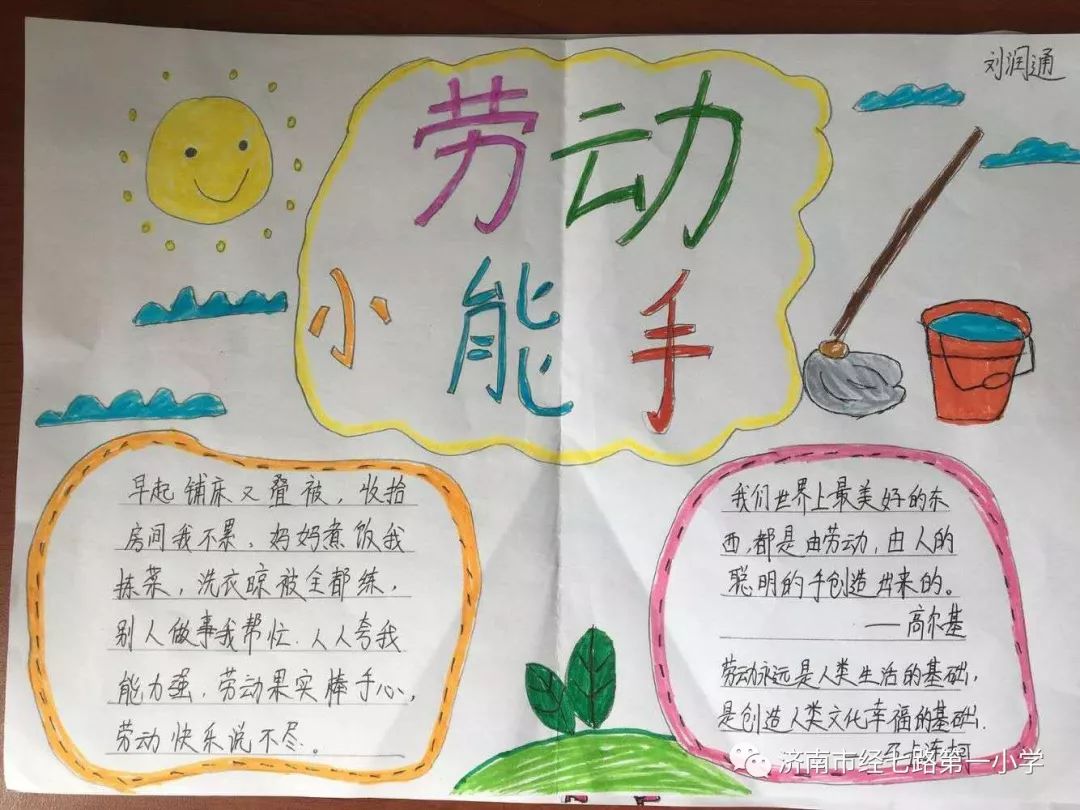 刘润通
劳动
小能手
早起铺床又叠被，收拾
房间我不累，妈妈煮饭我
拣菜，洗衣晾被全都练，
别人做事我帮忙，人人夸我
能力强，劳动果实捧手心，
劳动快乐说不尽。
我们世界上最美好的东
西，都是由劳动，由人的
聪明的手创造出来的。
——高尔基
劳动永远是人类生活的基础，
是创造人类文化幸福的基础．
济南市经七路第一小学